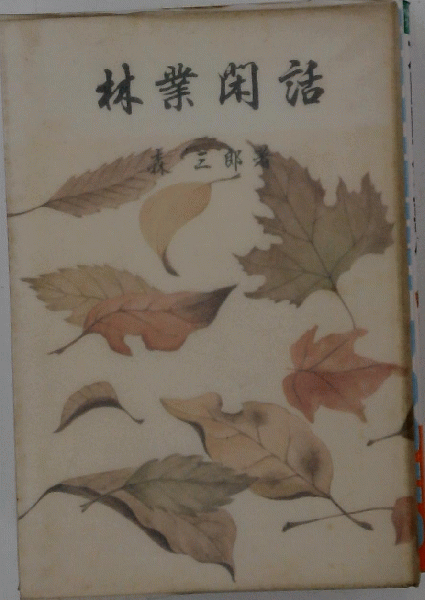 林業閑話
森三郎著